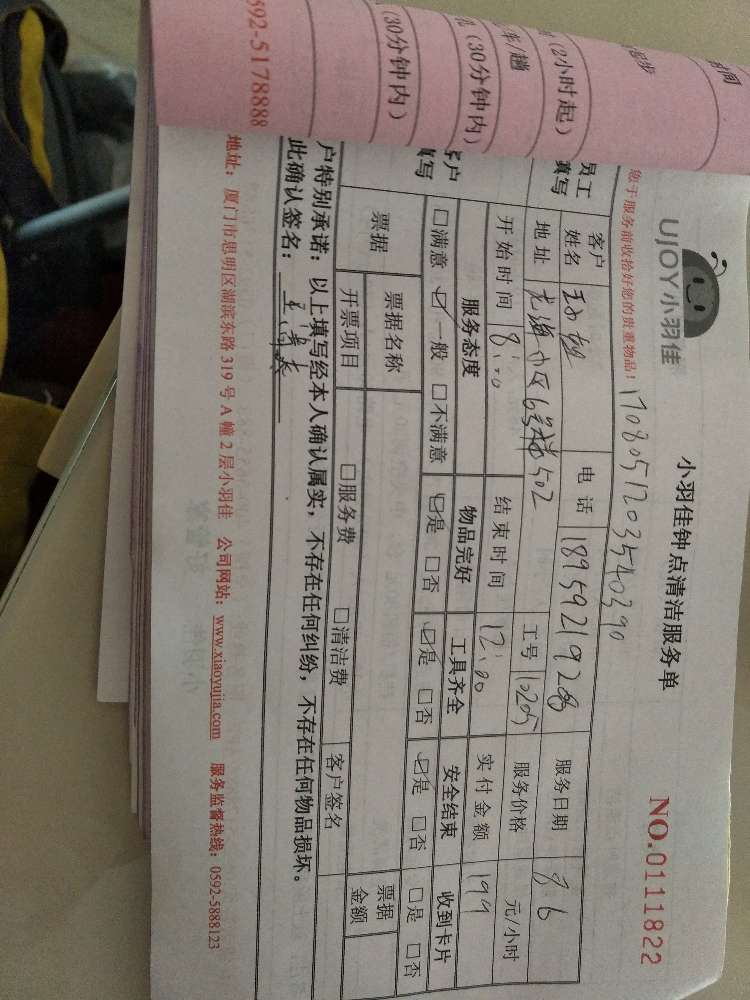 时间
起步
(2小时起)
车/趟
(30分钟内)
(30分钟内)
592-5178888
UJOY小羽佳
小羽佳钟点清洁服务单
NO.0111822
您于服务前收拾好您的贵重物品!
员工
填写
客户
姓名
电话
服务日期
8.6
地址
工号
10205
服务价格
元/小时
开始时间
8:00
结束时间
12:00
实付金额
199
客户
填写
服务态度
物品完好
工具齐全
安全结束
收到卡片
□满意 ☑一般 □不满意
☑是 □否
☑是 □否
☑是 □否
□是 □否
票据
票据名称
票据
金额
开票项目
□服务费
□清洁费
客户签名
户特别承诺:以上填写经本人确认属实,不存在任何纠纷,不存在任何物品损坏。
此确认签名:
地址:厦门市思明区湖滨东路319号A幢2层小羽佳 公司网站:www.xiaoyujia.com 服务监督热线:0592-5888123